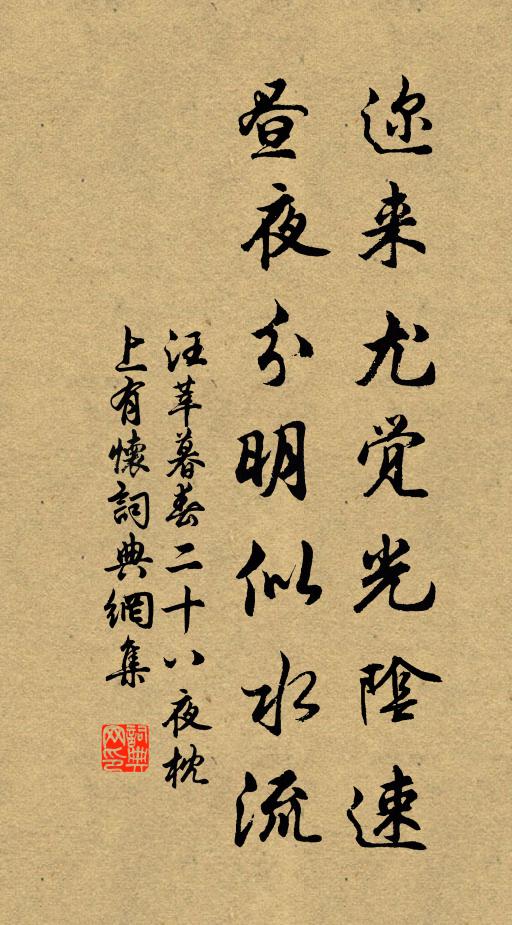 迩来尤觉光陰速
昼夜分明似水流
汪莘暮春二十八夜枕
上有懷詞典網集
詞典網印